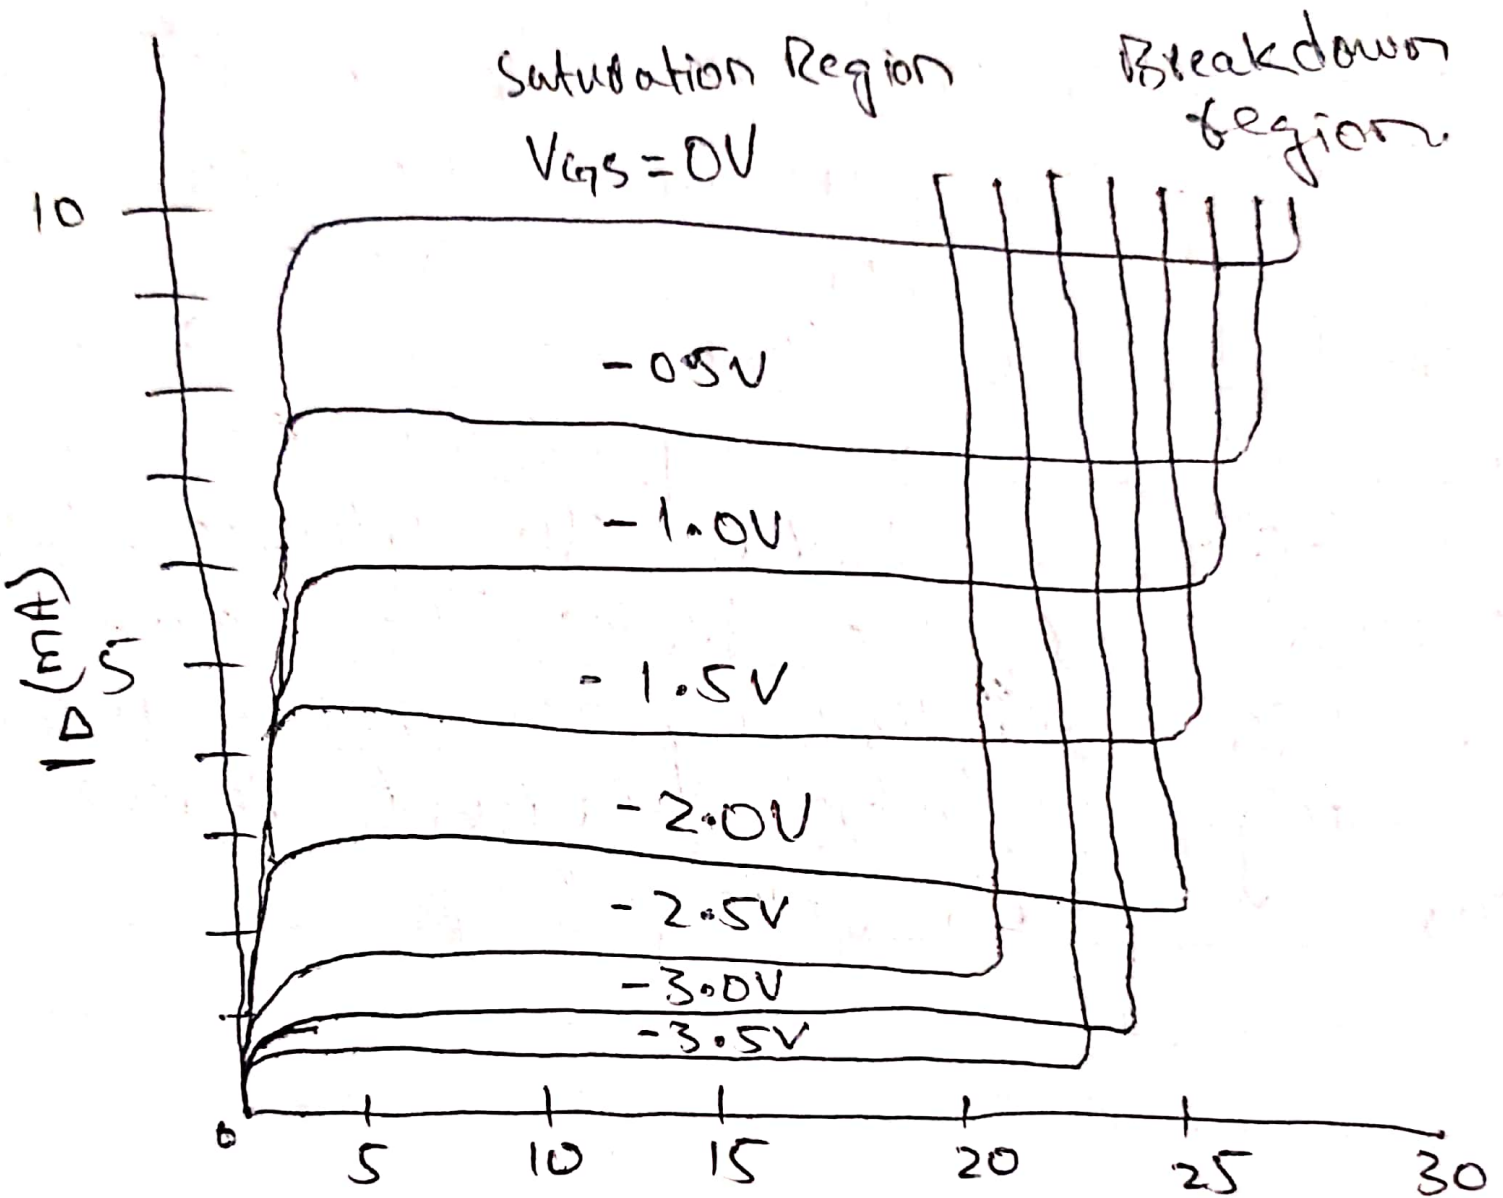 Saturation Region
Breakdown
region
VGS = 0V
10
-0.5V
-1.0V
ID (mA)
5
-1.5V
-2.0V
-2.5V
-3.0V
-3.5V
0
5
10
15
20
25
30